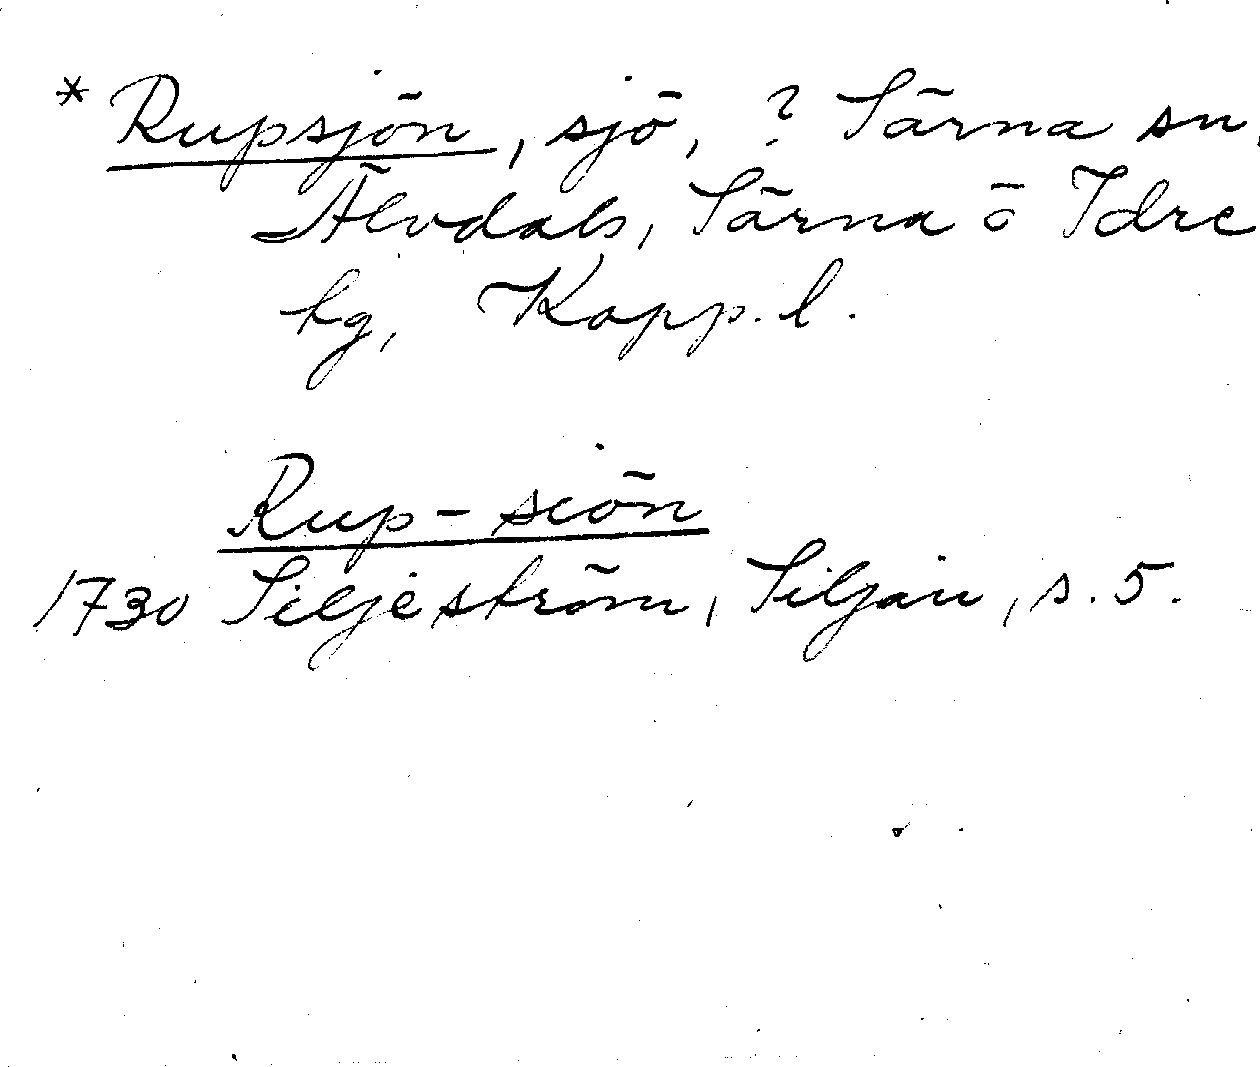 * Rupsjön, sjö, ? Särna sn,
Älvdals, Särna ö Idre
hg, Kopp. l.
Rup-siön
1730 Siljeström, Siljan, s. 5.